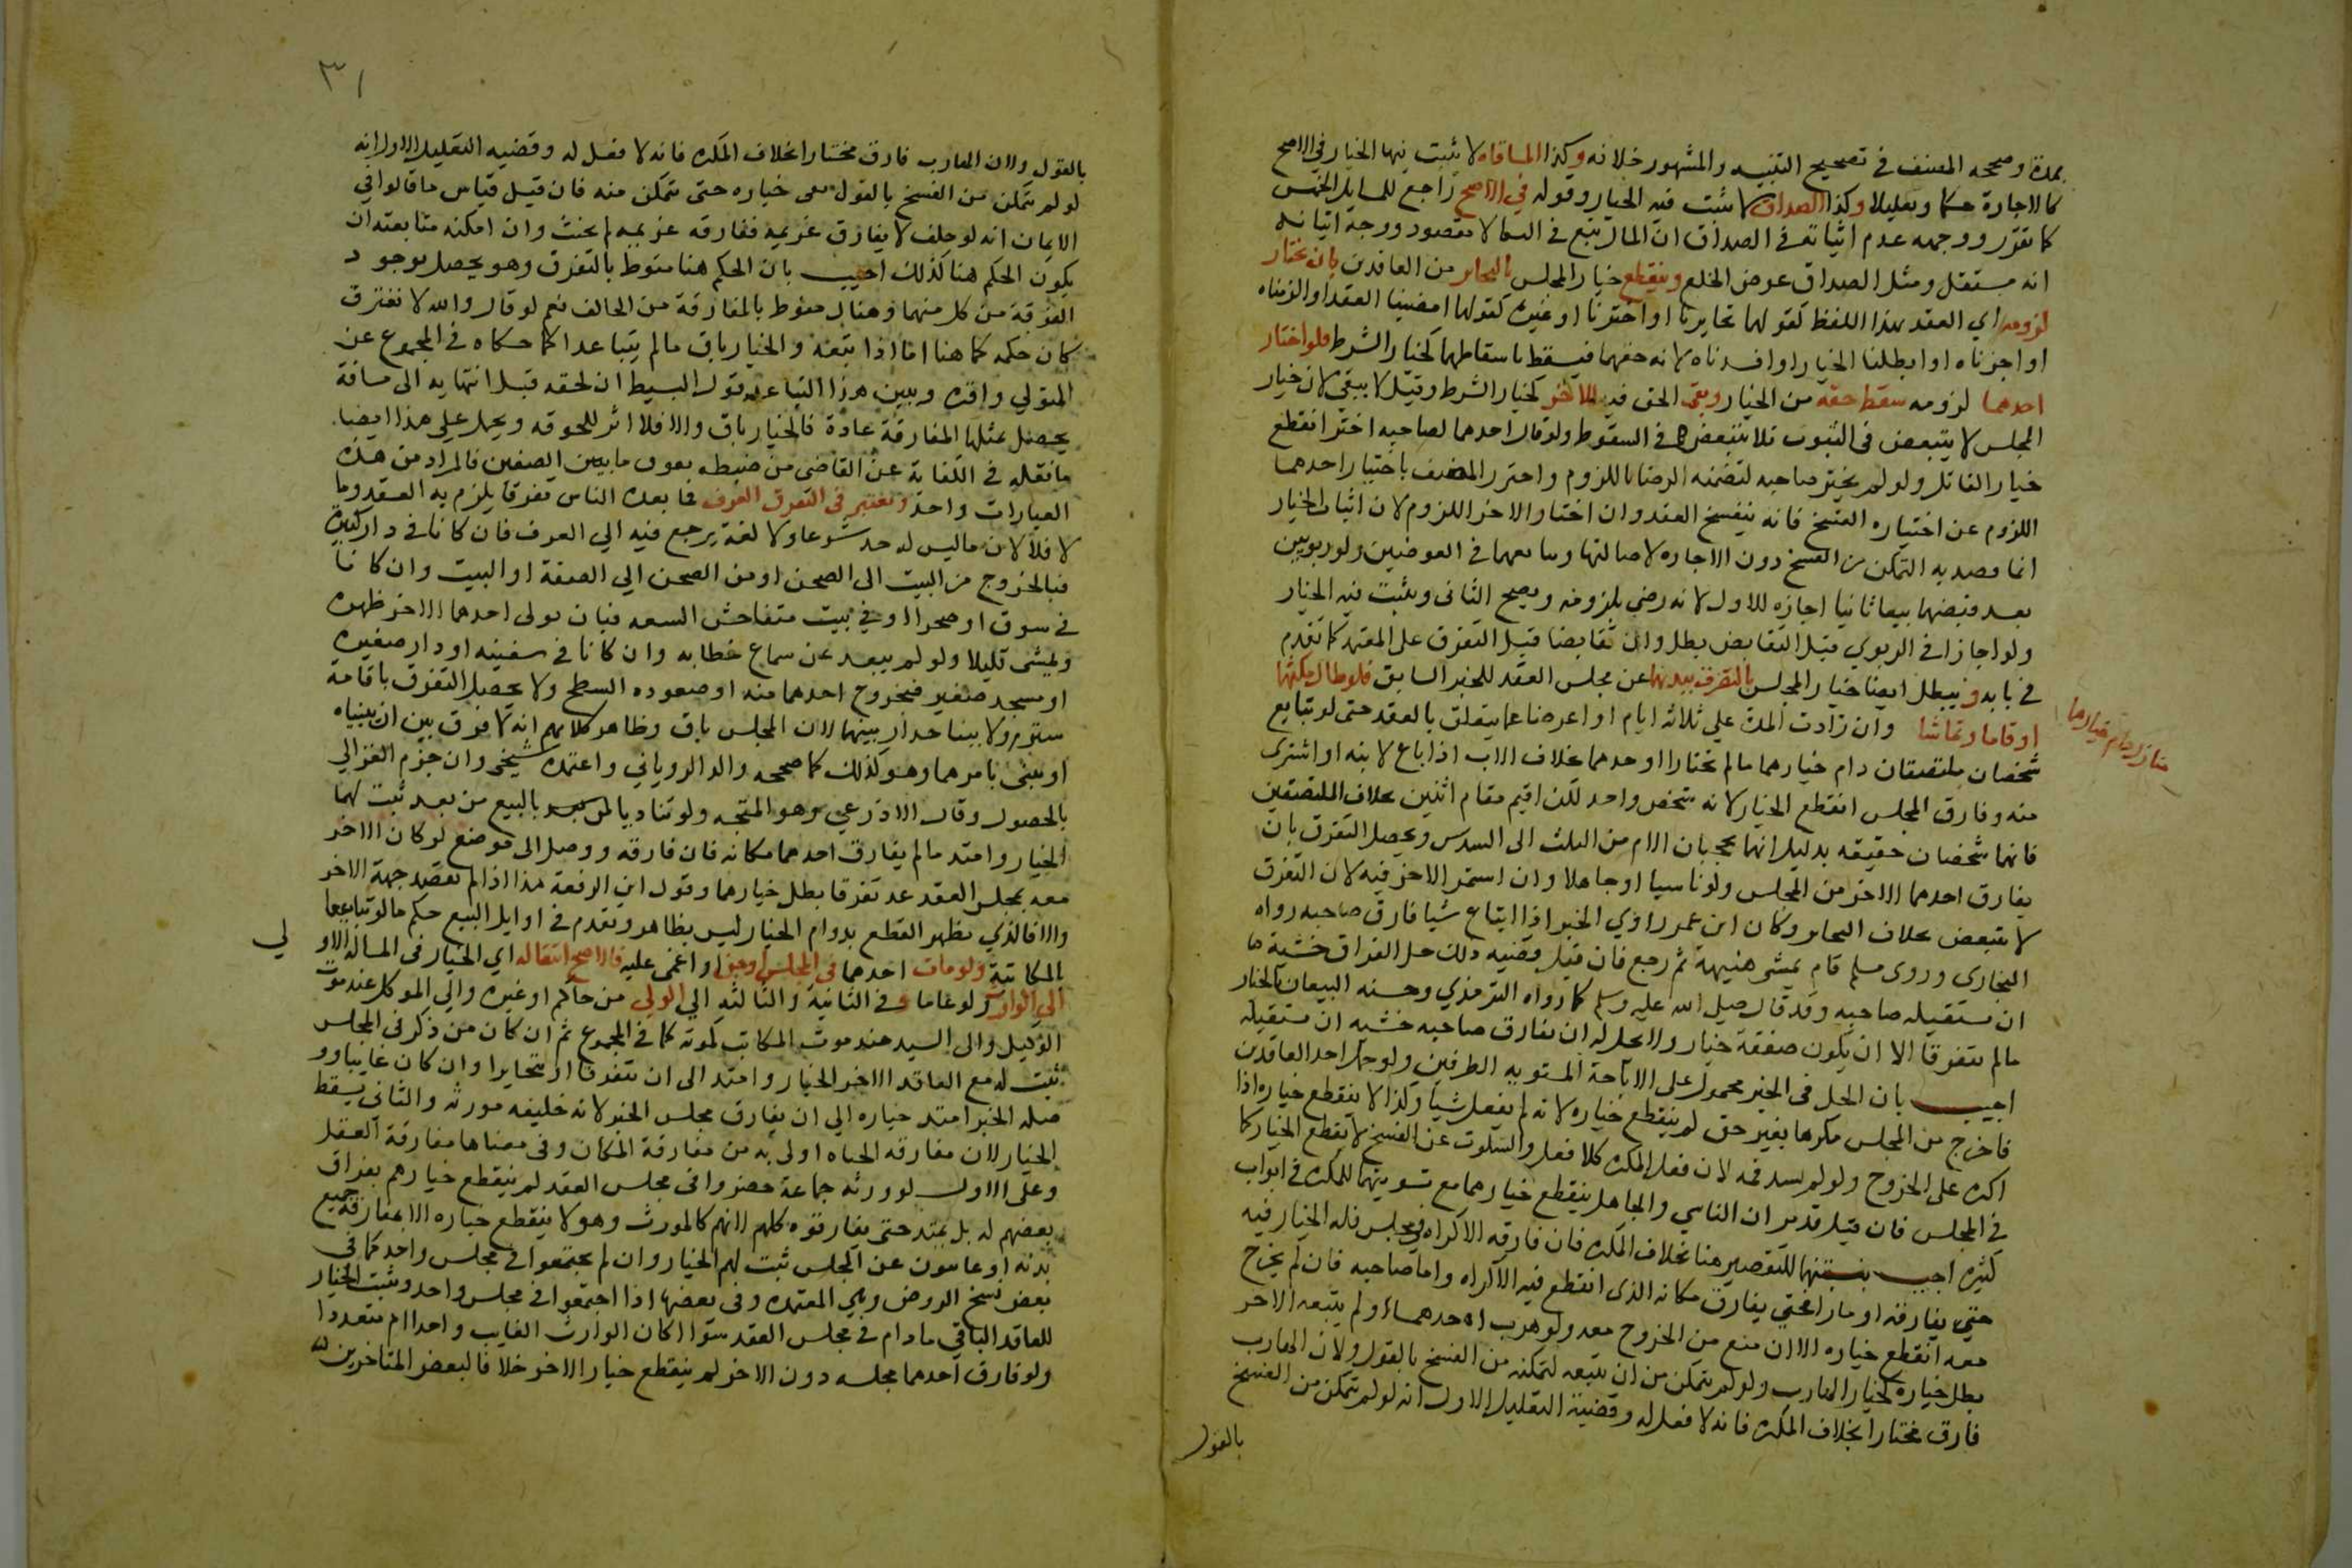 بمدة وصححه المصنف في تصحيح التنبيه والمشهور خلافه وكذا المساقاه لا يثبت فيها الخيار في الاصح
كالاجارة حكما وتعليلا وكذا الصداق لا يثبت فيه الخيار وقوله في الاصح راجع للمسايل الخمس
كما تقرر ووجهه عدم اثباته في الصداق ان المال تبع في النكاح لا مقصود ووجه اثباته
انه مستقل ومثل الصداق عوض الخلع وينقطع خيار المجلس بالتخاير من العاقدين بان يختارا
لزومه اي العقد بهذا اللفظ كقولهما تخايرنا او اخترنا او غيره كقولهما امضينا العقد او الزمناه
او اجزناه او ابطلنا الخيار او افسدناه لانه حقهما فيسقط باسقاطهما كخيار الشرط فلو اختار
احدهما لزومه سقط حقه من الخيار وبقي الحق فيه للاخر كخيار الشرط وقيل لا يبقي لان خيار
المجلس لا يتبعض في الثبوت فلا يتبعض في السقوط ولو قال احدهما لصاحبه اختر انقطع
خيار القائل ولو لم يختر صاحبه لتضمنه الرضا باللزوم واحترز المصنف باختيار احدهما
اللزوم عن اختياره الفسخ فانه ينفسخ العقد وان اختار الاخر اللزوم لان اثبات الخيار
انما قصد به التمكن من الفسخ دون الاجازه لاصالتها وتبايعهما في العوضين ولو ربويين
بعد قبضهما بيعا ثانيا اجازه للاول لانه رضي بلزومه ويصح الثاني ويثبت فيه الخيار
ولو اجازا في الربوي قبل التقابض بطل وان تقابضا قبل التفرق على المعتمد كما تقدم
في بابه ويبطل ايضا خيار المجلس بالتفرق ببدنهما عن مجلس العقد للخبر السابق فلو طال مكثهما
او قاما وتماشيا منازل دام خيارهما وان زادت المدة علي ثلاثه ايام او اعرضا عما يتعلق بالعقد حتى لو تبايع
شخصان ملتصقان دام خيارهما ما لم يختارا او احدهما بخلاف الاب اذا باع لابنه او اشترى
منه وفارق المجلس انقطع الخيار لانه شخص واحد لكن اقيم مقام اثنين بخلاف الملتصقين
فانهما شخصان حقيقه بدليل انهما يحجبان الام من الثلث الى السدس ويحصل التفرق بان
يفارق احدهما الاخر من المجلس ولو ناسيا او جاهلا وان استمر الاخر فيه لان التفرق
لا يتبعض بخلاف التخاير وكان ابن عمر راوي الخبر اذا ابتاع شيا فارق صاحبه رواه
البخاري وروى مسلم قام يمشي هنيهة ثم رجع فان قيل قضيه ذلك حل الفراق خشية
ان يستقيله صاحبه وقد قال صلي الله عليه وسلم كما رواه الترمذي وحسنه البيعان بالخيار
ما لم يتفرقا الا ان يكون صفقة خيار ولا يحل له ان يفارق صاحبه خشيه ان يستقيله
اجيب بان الحل في الخبر محمول على الاباحة المستويه الطرفين ولو حمل احد العاقدين
فاخرج من المجلس مكرها بغير حق لم ينقطع خياره لانه لم يفعل شيا وكذا لا ينقطع خياره اذا
اكره على الخروج ولو لم يسد فمه لان فعل المكره كلا فعل والسكوت عن الفسخ لا يقطع الخيار كما
في المجلس فان قيل قد مر ان الناسي والجاهل ينقطع خيارهما مع تسويتهما للمكره في ابواب
كثيره اجيب بنسبتهما للتقصير هنا بخلاف المكره فان فارقه الاكراه في مجلس فله الخيار فيه
حتي يفارقه او مارا فحتي يفارق مكانه الذي انقطع فيه الاكراه واما صاحبه فان لم يخرج
معه انقطع خياره الا ان منع من الخروج معه ولو هرب احدهما ولم يتبعه الاخر
بطل خياره كخيار الهارب ولو لم يتمكن من ان يتبعه لتمكنه من الفسخ بالقول ولان الهارب
فارق مختارا بخلاف المكره فانه لا فعل له وقضية التعليل الاول انه لو لم يتمكن من الفسخ
بالقول
٣١
بالقول ولان الهارب فارق مختارا بخلاف المكره فانه لا فعل له وقضيه التعليل الاول انه
لو لم يتمكن من الفسخ بالقول بقي خياره حتى يتمكن منه فان قيل قياس ما قالوا في
الايمان انه لو حلف لا يفارق غريمه ففارقه غريمه لم يحنث وان امكنه متابعته ان
يكون الحكم هنا كذلك اجيب بان الحكم هنا منوط بالتفرق وهو يحصل بوجود
الفرقة من كل منهما وهناك منوط بالمفارقة من الحالف نعم لو قال والله لا نفترق
كان حكمه كما هنا اما اذا تبعه والخيار باق ما لم يتباعدا كما حكاه في المجموع عن
المتولي واقره وبين هذا التباعد قول البسيط ان لحقه قبل انتهايه الى مسافة
يحصل بمثلها المفارقة عادة فالخيار باق والا فلا اثر للحوقه ويحمل علي هذا ايضا
ما نقله في الكفاية عن القاضي من ضبطه بفوق ما بين الصفين فالمراد من هذه
العبارات واحد ويعتبر في التفرق العرف فما يعده الناس تفرقا يلزم به العقد وما
لا فلا لان ما ليس له حد شرعا ولا لغة يرجع فيه الي العرف فان كانا في دار كبيرة
فبالخروج من البيت الى الصحن او من الصحن الي الصفة او البيت وان كانا
في سوق او صحرا او في بيت متفاحش السعه فبان يولي احدهما الاخر ظهره
ويمشي قليلا ولو لم يبعد عن سماع خطابه وان كانا في سفينه او دار صغيره
او مسجد صغير فبخروج احدهما منه او صعوده السطح ولا يحصل التفرق باقامة
ستر ولا ببنا جدار بينهما لان المجلس باق وظاهر كلامهم انه لا فرق بين ان يبنياه
او يبنى بامرهما وهو كذلك كما صححه والد الروياني واعتمده شيخي وان جزم الغزالي
بالحصول وقال الاذرعي وهو المتجه ولو تناديا بالبيع من بعد ثبت لهما
الخيار وامتد ما لم يفارق احدهما مكانه فان فارقه ووصل الى موضع لو كان الاخر
معه بمجلس العقد عد تفرقا بطل خيارهما وقول ابن الرفعة هذا اذا لم يقصد جهة الاخر
والا فالذي يظهر القطع بدوام الخيار ليس بظاهر وتقدم في اوايل البيع حكم ما لو تبايعا
بالمكاتبة ولو مات احدهما في المجلس او جن او اغمى عليه فالاصح انتقاله اي الخيار في المسالة الاولي
الي الوارث ولو عاما وفي الثانية والثالثه الي الولي من حاكم او غيره والي الموكل عند موت
الوكيل والى السيد عند موت المكاتب كموته كما في المجموع ثم ان كان من ذكر في المجلس
ثبت له مع العاقد الاخر الخيار وامتد الى ان يتفرقا او يتخايرا وان كان غايبا و
صله الخبر امتد خياره الي ان يفارق مجلس الخبر لانه خليفه مورثه والثاني يسقط
الخيار لان مفارقه الحياه اولى به من مفارقة المكان وفي معناها مفارقة العقل
وعلى الاول لو ورثه جماعة حضروا في مجلس العقد لم ينقطع خيارهم بفراق
بعضهم له بل يمتد حتى يفارقوه كلهم لانهم كالمورث وهو لا ينقطع خياره الا بمفارقة جميع
بدنه او غايبون عن المجلس ثبت لهم الخيار وان لم يجتمعوا في مجلس واحد كما في
بعض نسخ الروض وهي المعتمده وفي بعضها اذا اجتمعوا في مجلس واحد ويثبت الخيار
للعاقد الباقي ما دام في مجلس العقد سوا اكان الوارث الغايب واحدا ام متعددا
ولو فارق احدهما مجلسه دون الاخر لم ينقطع خيار الاخر خلافا لبعض المتاخرين